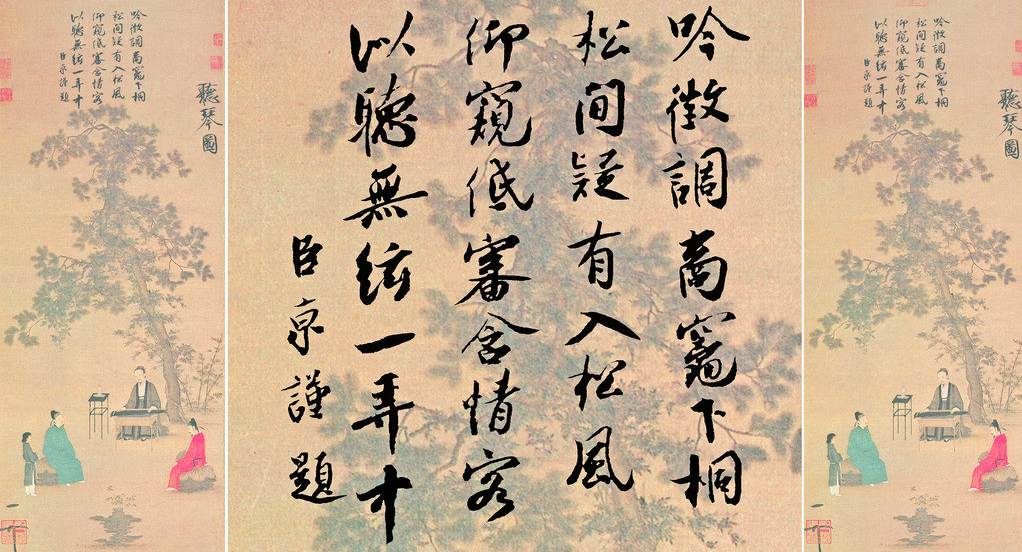 聽琴圖
吟徵調商竈下桐
松間疑有入松風
仰窺低審含情客
以聽無絃一弄中
臣京謹題
吟徵調商竈下桐
松間疑有入松風
仰窺低審含情客
以聽無絃一弄中
臣京謹題
聽琴圖
吟徵調商竈下桐
松間疑有入松風
仰窺低審含情客
以聽無絃一弄中
臣京謹題